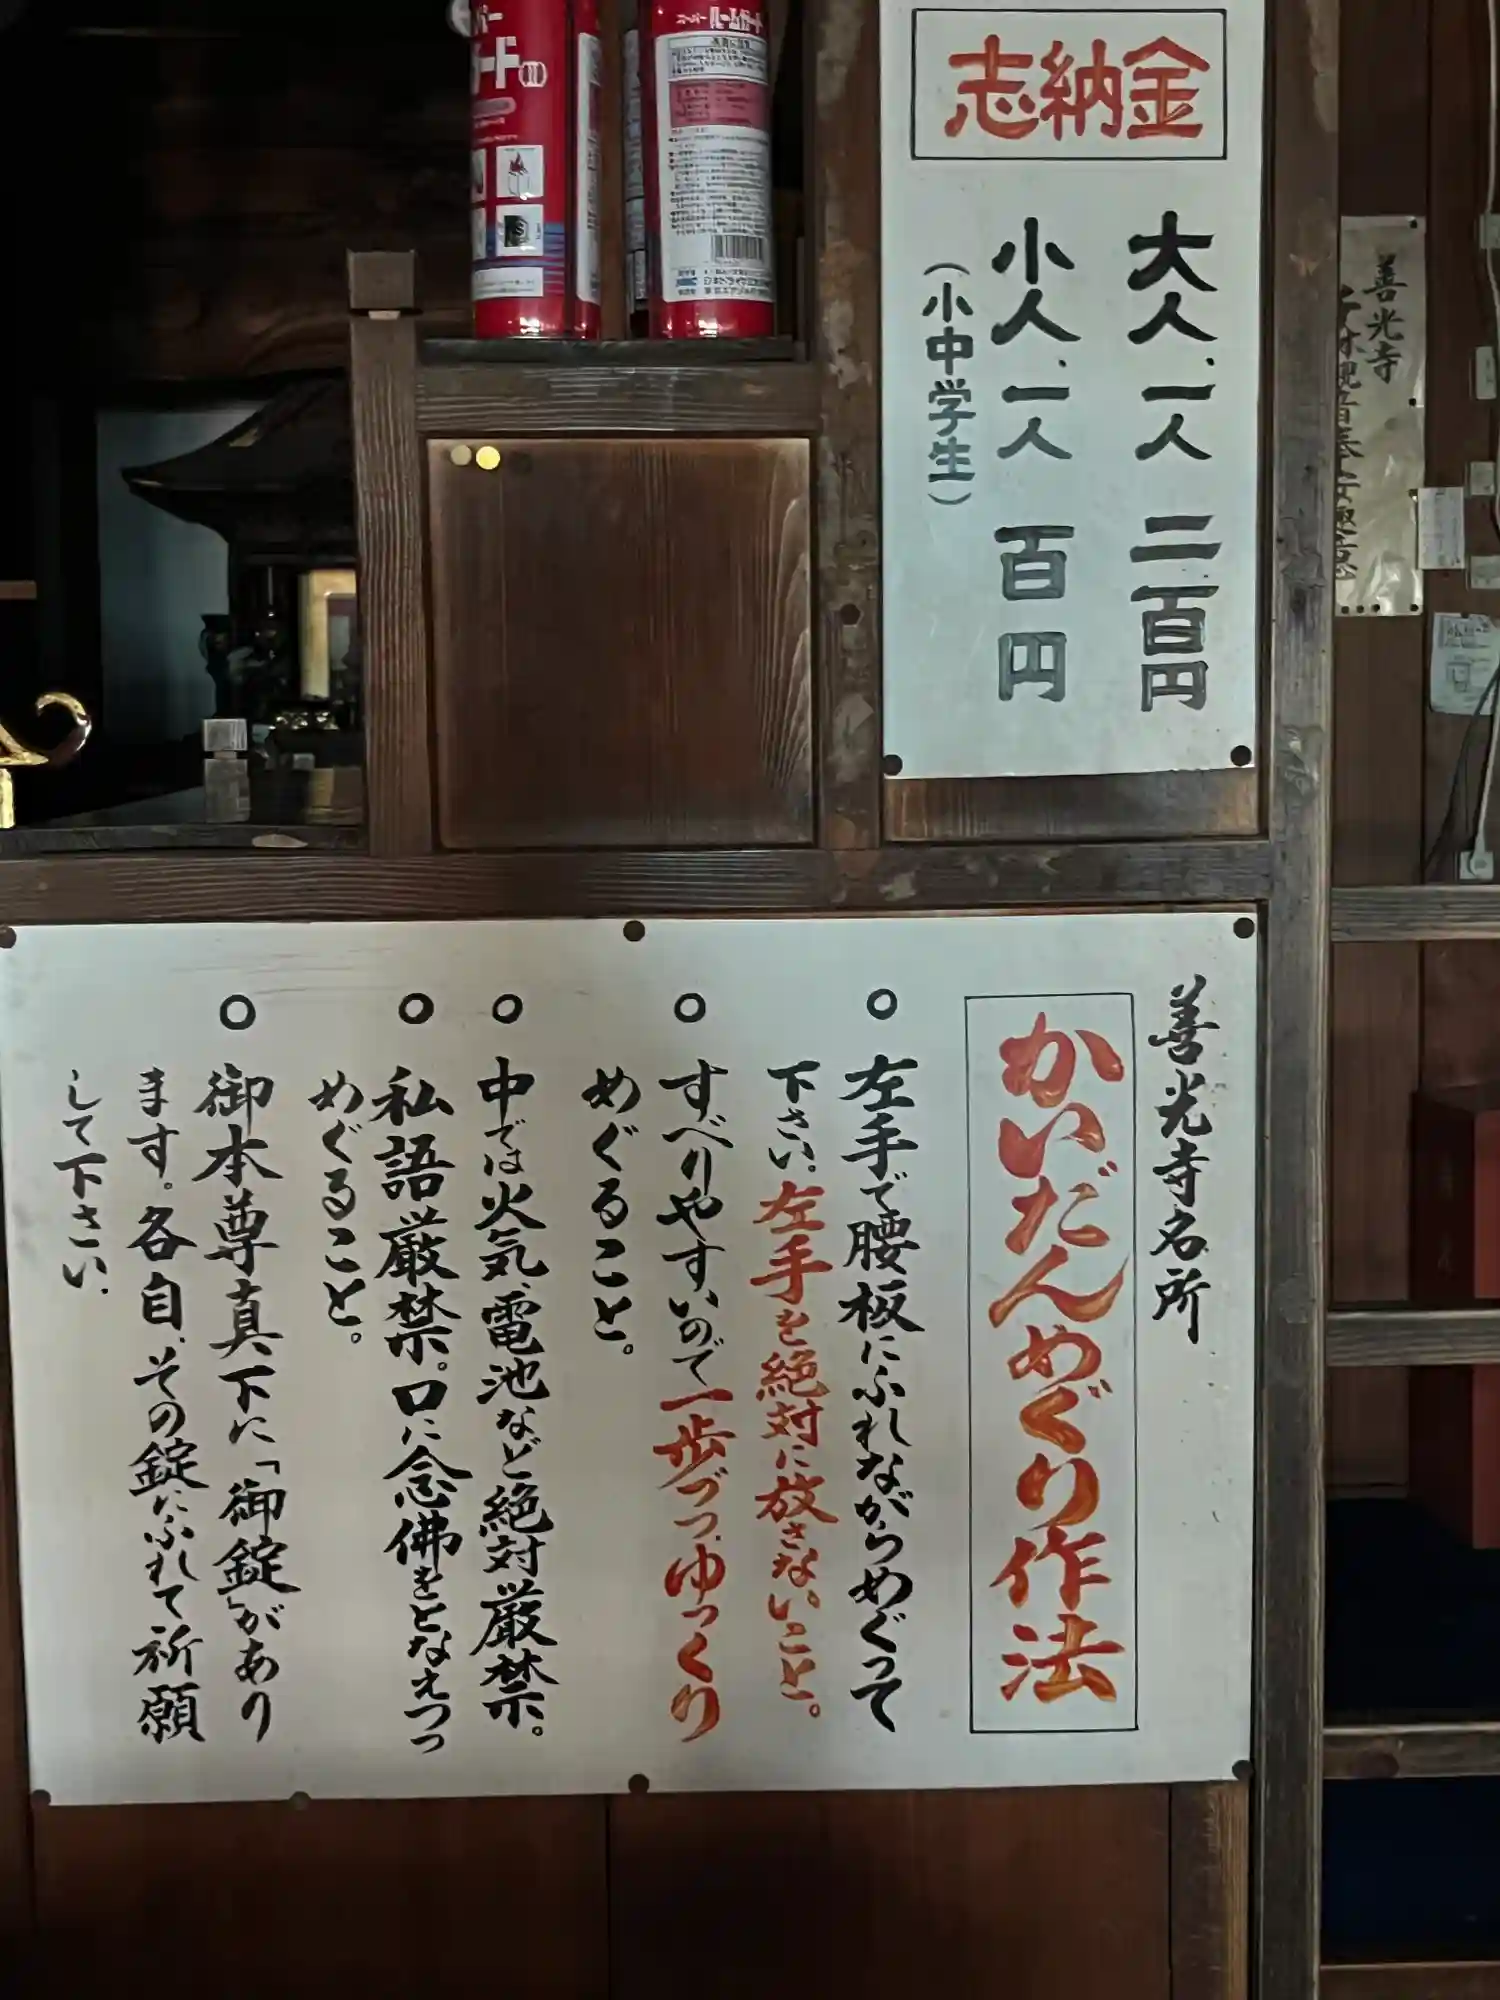 志納金
大人、一人 二百円
小人、一人 百円
（小中学生）
善光寺名所
かいだんめぐり作法
○ 左手で腰板にふれながらめぐって
下さい。左手を絶対に放さないこと。
○ すべりやすいので一歩づつ、ゆっくり
めぐること。
○ 中では火気、電池など絶対厳禁。
○ 私語厳禁。口に念佛をとなえつつ
めぐること。
○ 御本尊真下に「御錠」があり
ます。各自、その錠にふれて祈願
して下さい。
善光寺